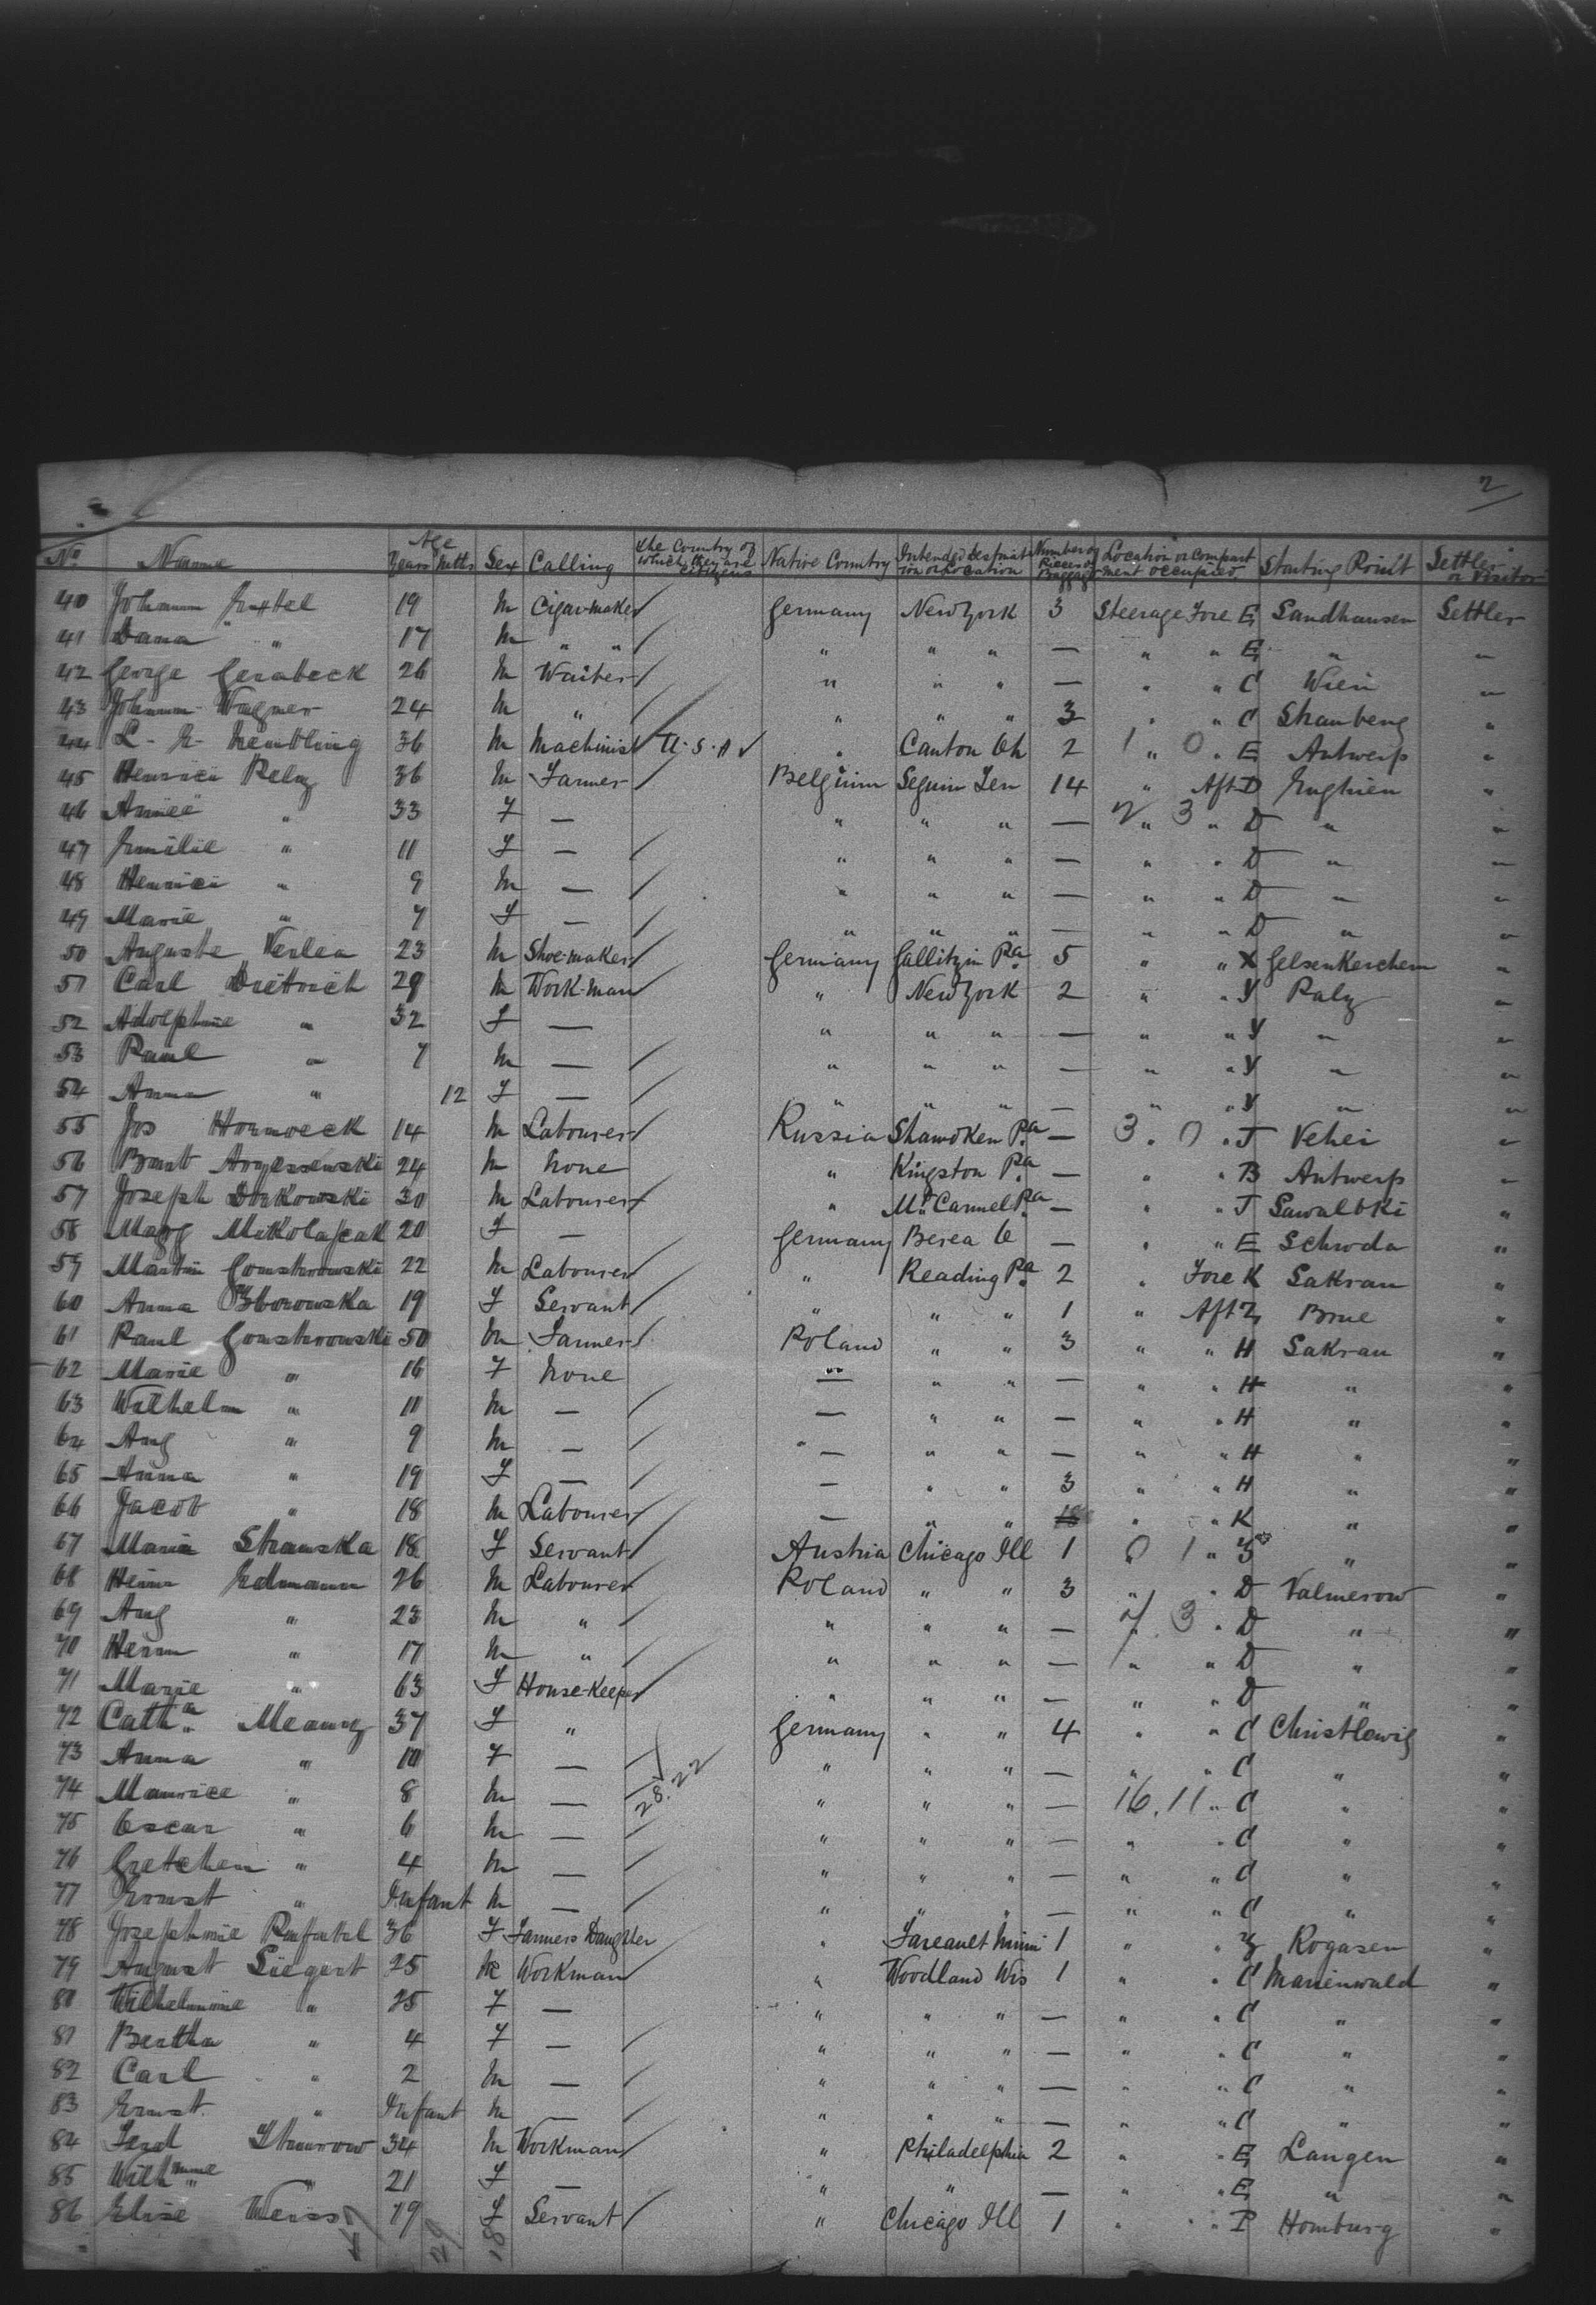 2
No Name Age Years Mths Sex Calling the Country of which they are citizens Native Country Intended destination or Location Number of Pieces of Baggage Location or compartment occupied Starting Point Settler or Visitor
40 Johann 19 M Cigar-maker Germany New York 3 Steerage Fore E Sandhausen Settler
41 Dana " 17 M " " " " " — " " E " "
42 George Gerabeck 26 M Waiter " " " — " " C Wien "
43 Johann Wagner 24 M " " " " 3 " " C Straubeng "
44 L. E. Hentling 36 M Machinist U.S.A " Canton Oh 2 1 " 0 " E Antwerp "
45 Henrici Relz 36 M Farmer Belgium Seguin Ten 14 " Aft D Enghien "
46 Aimee " 33 F — " " " — 2 " 3 " D " "
47 Emilie " 11 F — " " " — " " D " "
48 Henrici " 9 M — " " " — " " D " "
49 Marie " 7 F — " " " — " " D " "
50 Auguste Verlea 23 M Shoe-maker Germany Gallitzin Pa 5 " " X Gelsenkerchem "
51 Carl Dietrich 29 M Work-man " New York 2 " " Y Palz "
52 Adolphine " 32 F — " " " — " " Y " "
53 Paul " 7 M — " " " — " " Y " "
54 Anna " 12 F — " " " — " " Y " "
55 Jos Hornoeck 14 M Labourer Russia Shamoken Pa — 3 . 0 . J Vehei "
56 Bart 24 M None " Kingston Pa — " " B Antwerp "
57 Joseph Dorkowski 30 M Labourer " Mt Carmel Pa — " " J Sawalbki "
58 Marg Mikolajcak 20 F — Germany Berea O — " " E Schroda "
59 Martin Gomstrowski 22 M Labourer " Reading Pa 2 " Fore K Sakrau "
60 Anna Zborowska 19 F Servant " " " 1 " Aft Z Brue "
61 Paul Gomstrowski 50 M Farmer Poland " " 3 " " H Sakrau "
62 Marie " 16 F None — " " — " " H " "
63 Wilhelm " 11 M — — " " — " " H " "
64 Aug " 9 M — — " " — " " H " "
65 Anna " 19 F — — " " 3 " " H " "
66 Jacob " 18 M Labourer — " " " " K " "
67 Maria Stramska 18 F Servant Austria Chicago Ill 1 " 0 1 " " "
68 Heinr Edmann 26 M Labourer Poland " " 3 " " D Valmerow "
69 Aug " 23 M " " " " — 7 . 3 . D " "
70 Herm " 17 M " " " " — " " D " "
71 Marie " 63 F House-Keeper " " " — " " D " "
72 Catha Meamz 37 F " Germany " " 4 " " C Christlewig "
73 Anna " 10 F — " " " — " " C " "
74 Maurice " 8 M — 28.22 " " " — 16.11 " C " "
75 Oscar " 6 M — " " " — " " C " "
76 Gretchen " 4 M — " " " — " " C " "
77 Ernst " Infant M — " " " — " " C " "
78 Josephine 36 F Farmers Daughter " Fareault Minn 1 " " Z Rogasen "
79 August Siegert 25 M Workman " Woodland Wis 1 " " C Marienwald "
80 Wilhelmine " 25 F — " " " — " " C " "
81 Bertha " 4 F — " " " — " " C " "
82 Carl " 2 M — " " " — " " C " "
83 Ernst " Infant M — " " " — " " C " "
84 Ferd 34 M Workman " Philadelphia 2 " " E Langen "
85 Wilhmine " 21 F — " " — " " E " "
86 Elise Weiss 19 F Servant " Chicago Ill 1 " " P Homburg "